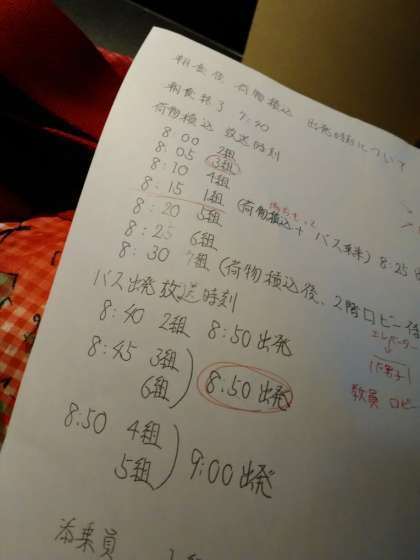 朝食後 荷物積込 出発時刻について
朝食終了 7:40
荷物積込 放送時刻
8:00 2組
8:05 3組
8:10 4組
8:15 1組 (荷物積込 + バス乗車) 8:25
8:20 5組
8:25 6組
8:30 7組 (荷物積込後、2階ロビー待
バス出発放送時刻
8:40 2組 8:50出発
8:45 3組
6組 8:50出発
8:50 4組
5組 9:00出発
エレベーター
教員 ロビー
添乗員